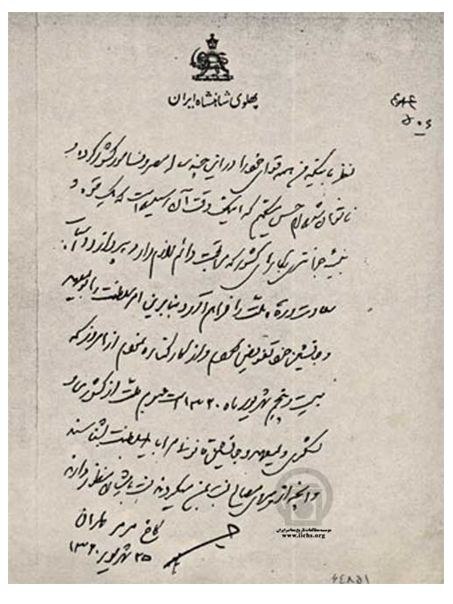 پهلوی شاهنشاه ایران
نظر باینکه من همه قوای خود را در این چند ساله مصروف امور کشور کرده و
ناتوان شده‌ام حس میکنم که اینک وقت آن رسیده است که یک قوه و
بنیه جوانتری بکارهای کشور که مراقبت دائم لازم دارد بپردازد و اسباب
سعادت و رفاه ملت را فراهم آورد بنابراین امور سلطنت را بولیعهد
و جانشین خود تفویض نمودم و از کار کناره نمودم از امروز که
بیست و پنجم شهریور ماه ۱۳۲۰ است عموم ملت از کشوری و
لشکری ولیعهد و جانشین قانونی مرا باید بسلطنت بشناسند
و آنچه از پیروی مصالح کشور نسبت بمن میکردند نسبت بایشان منظور دارند
کاخ مرمر طهران
۲۵ شهریور ۱۳۲۰
موسسه مطالعات تاریخ معاصر ایران
www.iichs.org